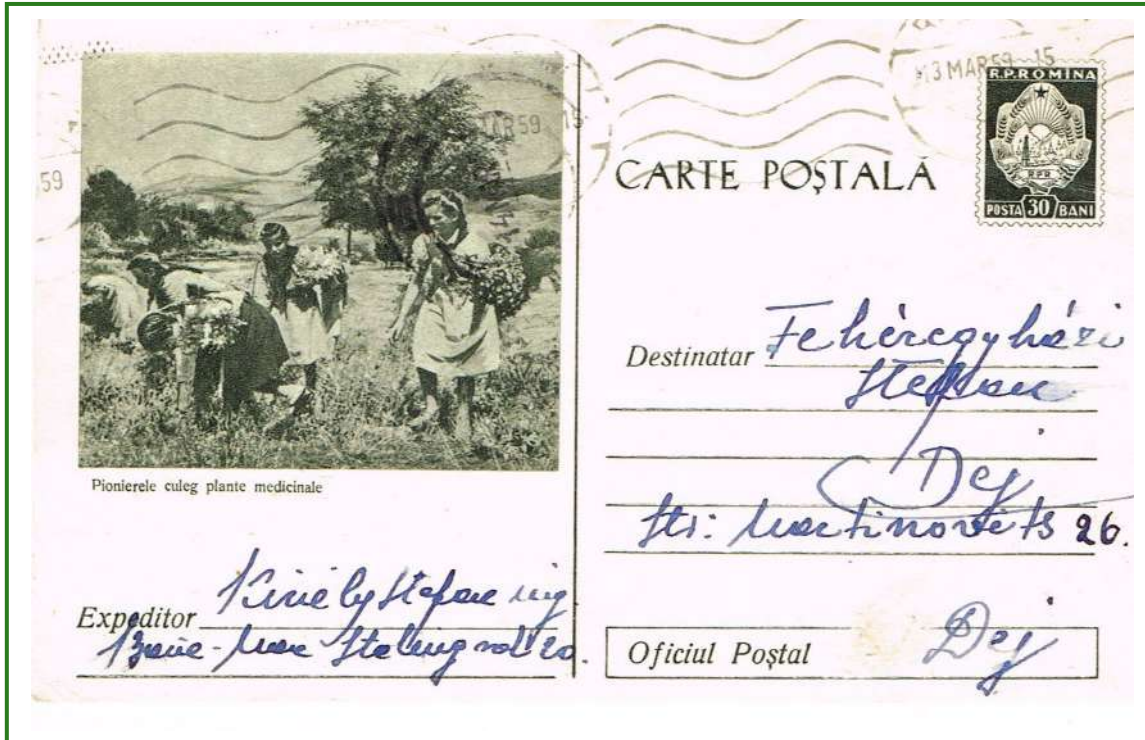 13 MAR 59 15
R.P.ROMÎNA
R.P.R
POSTA 30 BANI
MAR 59 15
59
CARTE POȘTALĂ
Pionierele culeg plante medicinale
Destinatar Fehéregyházi
Stefan
Dej
Str: Martinovits 26.
Expeditor Király Stefan ing
Baia-Mare Stalingrad 20.
Oficiul Poștal Dej